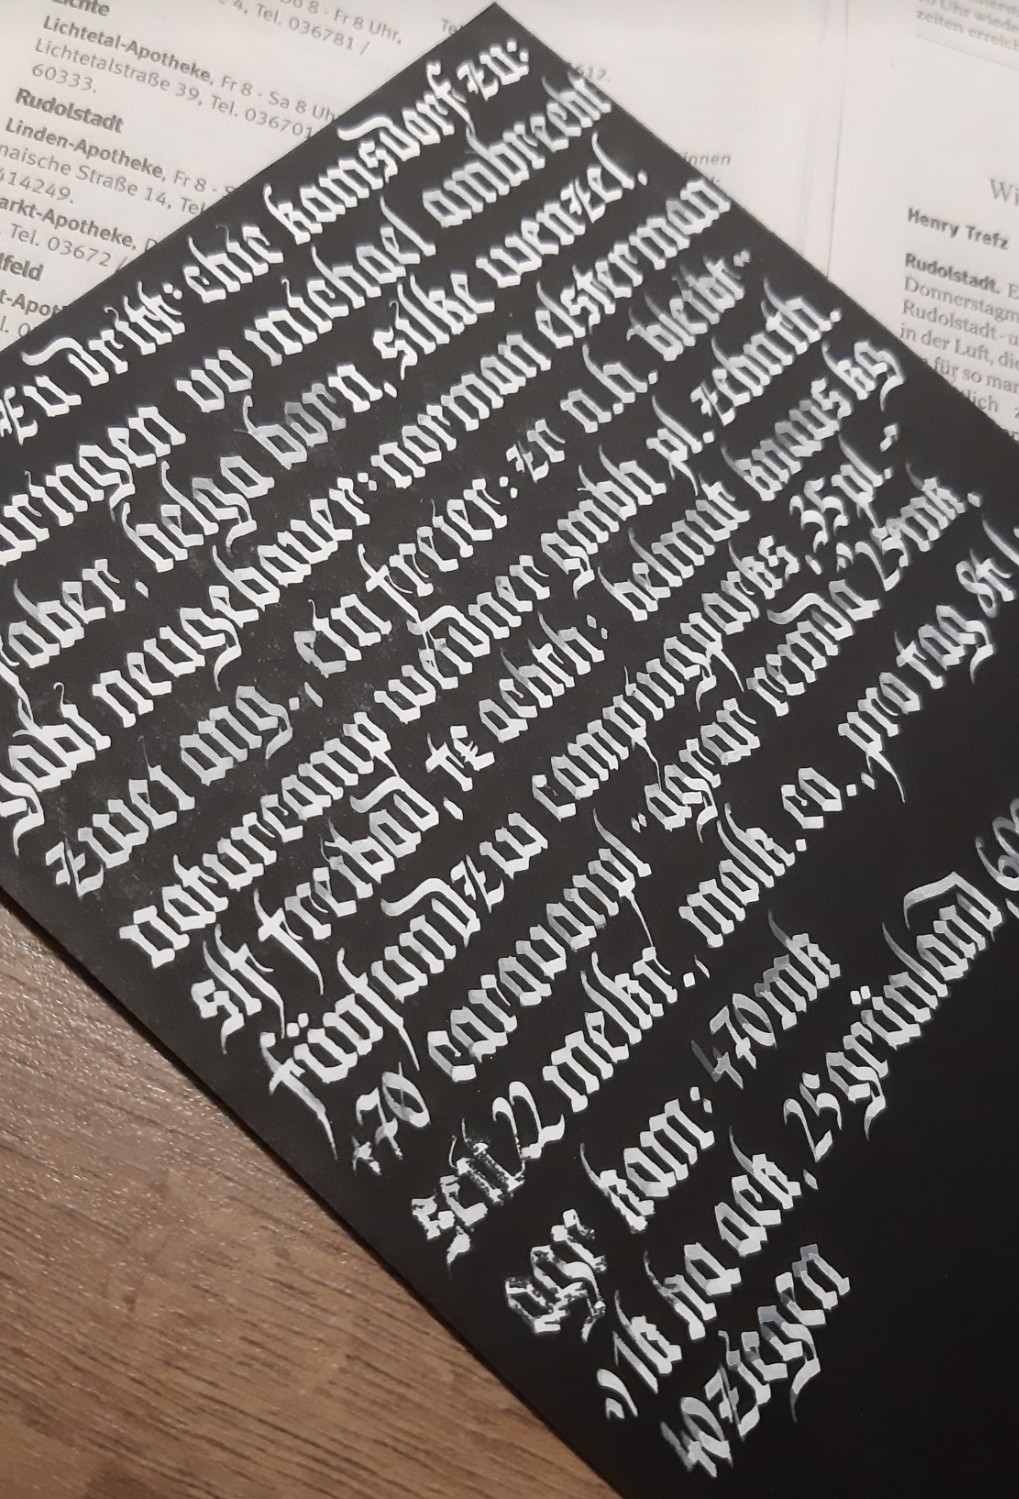 Lichte
Lichtetal-Apotheke, Fr 8 - Sa 8 Uh
Lichtetalstraße 39, Tel. 036701
60333.
Rudolstadt
Linden-Apotheke, Fr 8 - S
naische Straße 14, Tel
414249.
arkt-Apotheke,
Tel. 03672 /
lfeld
t-Apot
8 - Fr 8 Uhr,
4, Tel. 036781 /
innen
Wi
Henry Trefz
Rudolstadt. E
Donnerstagm
Rudolstadt-u
in der Luft, die
für so mar
dlich
Uhr wiede
zeiten erreich
zu dritt: chie kamsdorf zu:
uringen vv michael ambrecht
faber, helga born, silke wenzel,
gabi neugebauer: norman elsterman
zwei ang., ein freier: zn n.h. bleibt"
naturcamp weidner gmbh pl. zehnth.
slf freibad, te achth: helmut knausky
fünfundzw campingparks, 35pl.-
+70 caravanpl "agrar remda 225mk.
sen 22 melkr., molk. co., pro tag &
agr kam: 470mk
"1k ha ack, 25 grünland 600
40 ziegen